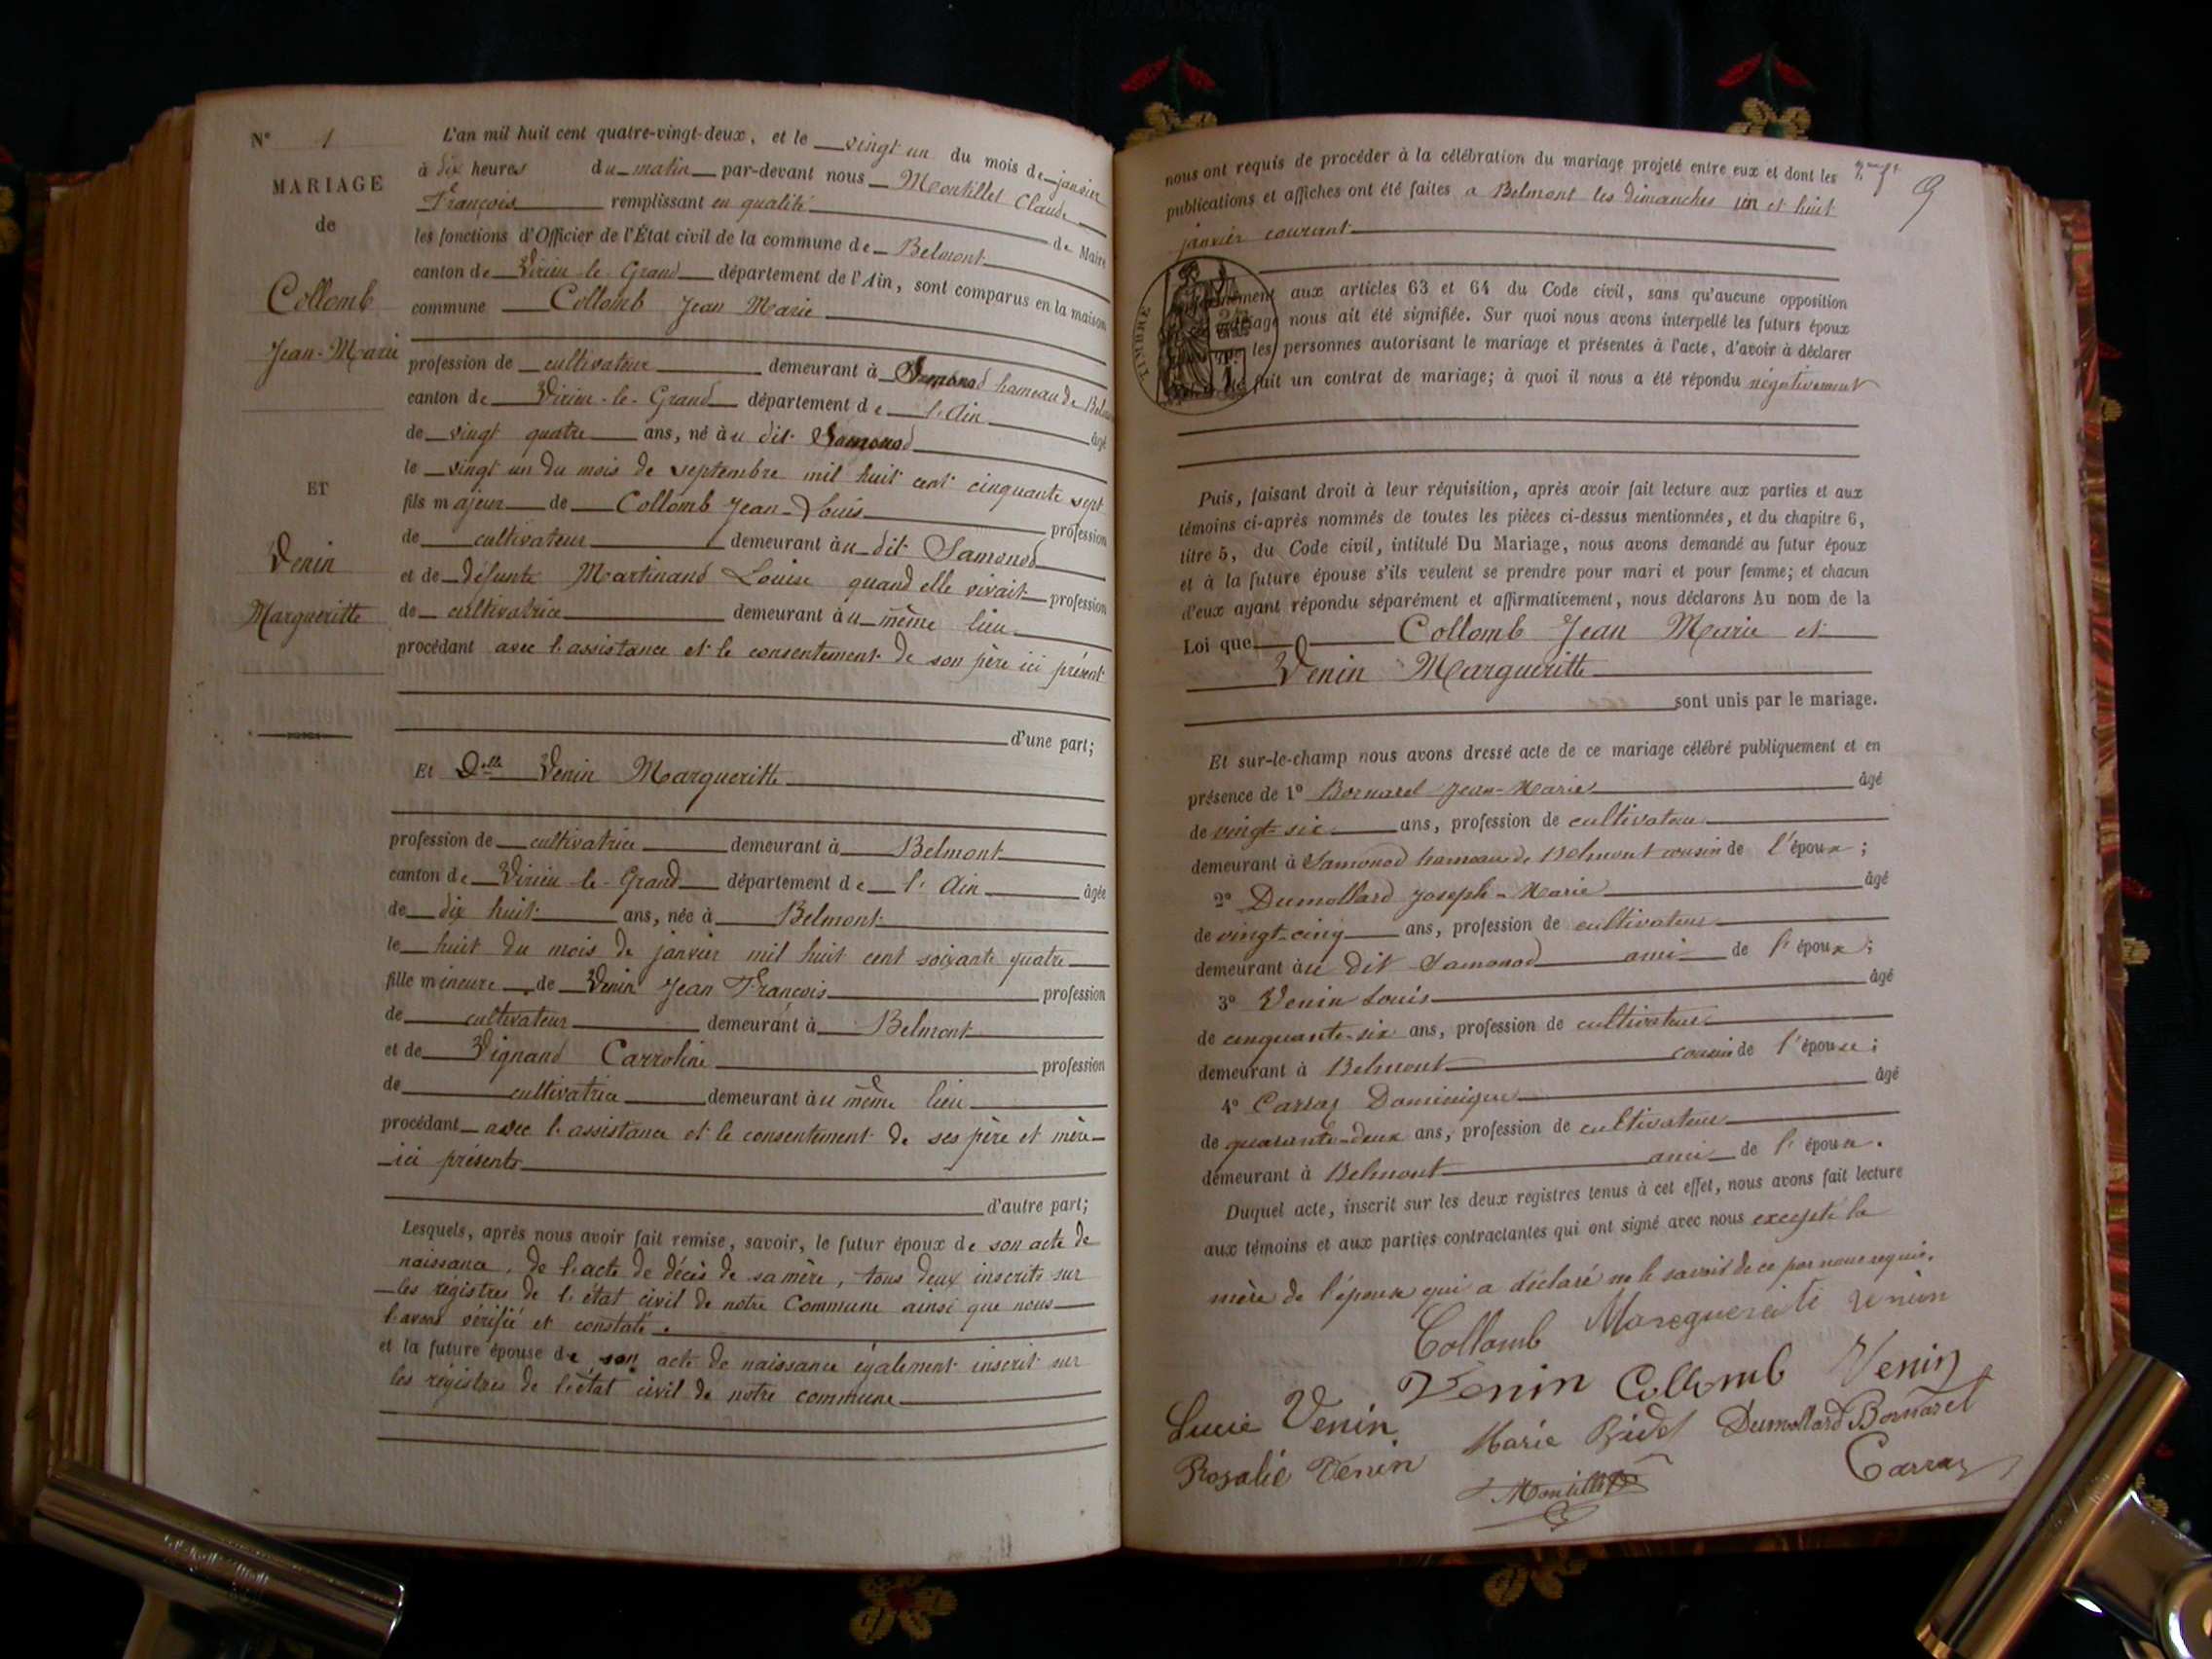 N° 1
MARIAGE
de
Collomb
Jean-Marie
ET
Venin
Margueritte
L'an mil huit cent quatre-vingt-deux, et le vingt un du mois de janvier
à dix heures du matin par-devant nous Montillet Claude
François remplissant en qualité de Maire
les fonctions d'Officier de l'État civil de la commune de Belmont
canton de Virieu-le-Grand département de l'Ain, sont comparus en la maison
commune Collomb Jean Marie
profession de cultivateur demeurant à Samonod hameau de Belmont
canton de Virieu-le-Grand département de l'Ain âgé
de vingt quatre ans, né au dit Samonod
le vingt un du mois de septembre mil huit cent cinquante sept
fils majeur de Collomb Jean-Louis profession
de cultivateur demeurant au dit Samonod
et de défunte Martinand Louise quand elle vivait profession
de cultivatrice demeurant au même lieu
procédant avec l'assistance et le consentement de son père ici présent
d'une part;
Et Delle Venin Margueritte
profession de cultivatrice demeurant à Belmont
canton de Virieu-le-Grand département de l'Ain âgée
de dix huit ans, née à Belmont
le huit du mois de janvier mil huit cent soixante quatre
fille mineure de Venin Jean François profession
de cultivateur demeurant à Belmont
et de Vignand Carroline profession
de cultivatrice demeurant au même lieu
procédant avec l'assistance et le consentement de ses père et mère
ici présents
d'autre part;
Lesquels, après nous avoir fait remise, savoir, le futur époux de son acte de
naissance, de l'acte de décès de sa mère, tous deux inscrits sur
les régistres de l'état civil de notre Commune ainsi que nous
l'avons vérifié et constaté.
et la future épouse de son acte de naissance également inscrit sur
les régistres de l'état civil de notre commune
9
nous ont requis de procéder à la célébration du mariage projeté entre eux et dont les
publications et affiches ont été faites a Belmont les dimanches un et huit
janvier courant
TIMBRE
aux articles 63 et 64 du Code civil, sans qu'aucune opposition
nous ait été signifiée. Sur quoi nous avons interpellé les futurs époux
les personnes autorisant le mariage et présentes à l'acte, d'avoir à déclarer
fait un contrat de mariage; à quoi il nous a été répondu négativement
Puis, faisant droit à leur réquisition, après avoir fait lecture aux parties et aux
témoins ci-après nommés de toutes les pièces ci-dessus mentionnées, et du chapitre 6,
titre 5, du Code civil, intitulé Du Mariage, nous avons demandé au futur époux
et à la future épouse s'ils veulent se prendre pour mari et pour femme; et chacun
d'eux ayant répondu séparément et affirmativement, nous déclarons Au nom de la
Loi que Collomb Jean Marie et
Venin Margueritte
sont unis par le mariage.
Et sur-le-champ nous avons dressé acte de ce mariage célébré publiquement et en
présence de 1° Bornarel Jean-Marie âgé
de vingt-six ans, profession de cultivateur
demeurant à Samonod hameau de Belmont cousin de l'époux;
2° Dumollard Joseph-Marie âgé
de vingt-cinq ans, profession de cultivateur
demeurant au dit Samonod ami de l'époux;
3° Venin Louis âgé
de cinquante-six ans, profession de cultivateur
demeurant à Belmont cousin de l'épouse;
4° Carraz Dominique âgé
de quarante-deux ans, profession de cultivateur
demeurant à Belmont ami de l'époux.
Duquel acte, inscrit sur les deux registres tenus à cet effet, nous avons fait lecture
aux témoins et aux parties contractantes qui ont signé avec nous excepté la
mère de l'épouse qui a déclaré ne le savoir de ce par nous requis.
Collomb Marguerite Venin
Venin Collomb Venin
Lucie Venin Marie Dumollard Bornarel
Rosalie Venin Carraz
Montillet